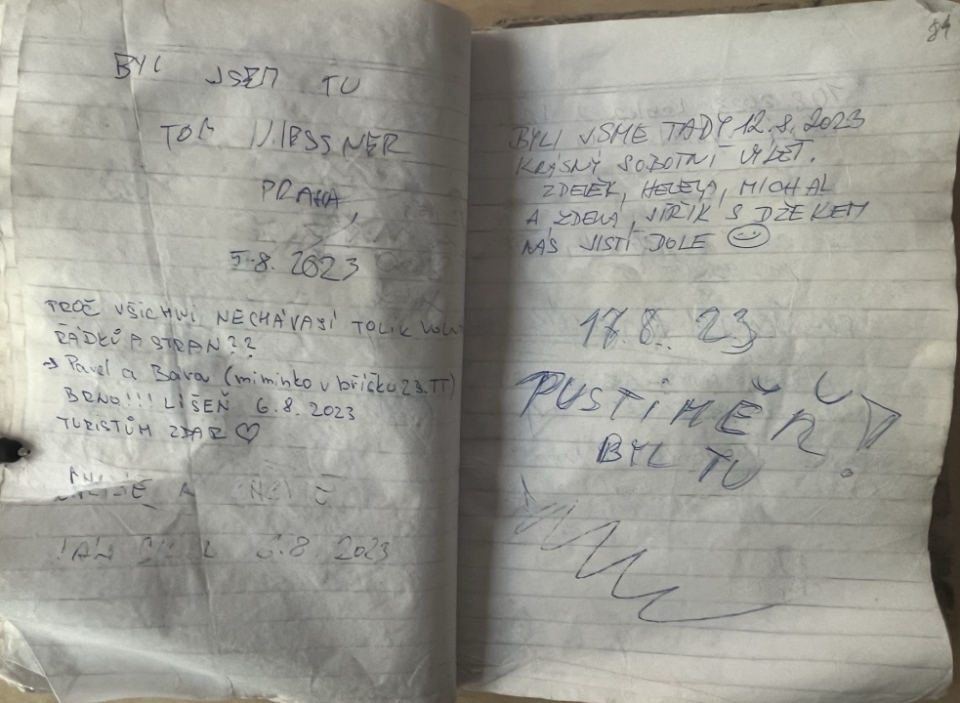 BYL JSEM TU
TOM
PRAHA,
5.8. 2023
PROČ VŠICHNI NECHÁVAJÍ TOLIK
ŘÁDKŮ A STRAN??
→ Pavel a Bára (miminko v bříšku 23.TT)
BRNO!!! LÍŠEŇ 6.8.2023
TURISTŮM ZDAR ♡
6.8. 2023
84
BYLI JSME TADY 12.8.2023
KRÁSNÝ SOBOTNÍ VÝLET.
ZDENĚK, HELENA, MICHAL
A ZDENA, JIŘÍK S DŽEKEM
NÁS JISTÍ DOLE ☺
17.8. 23
PUSTIMĚŘ!
BYL TU